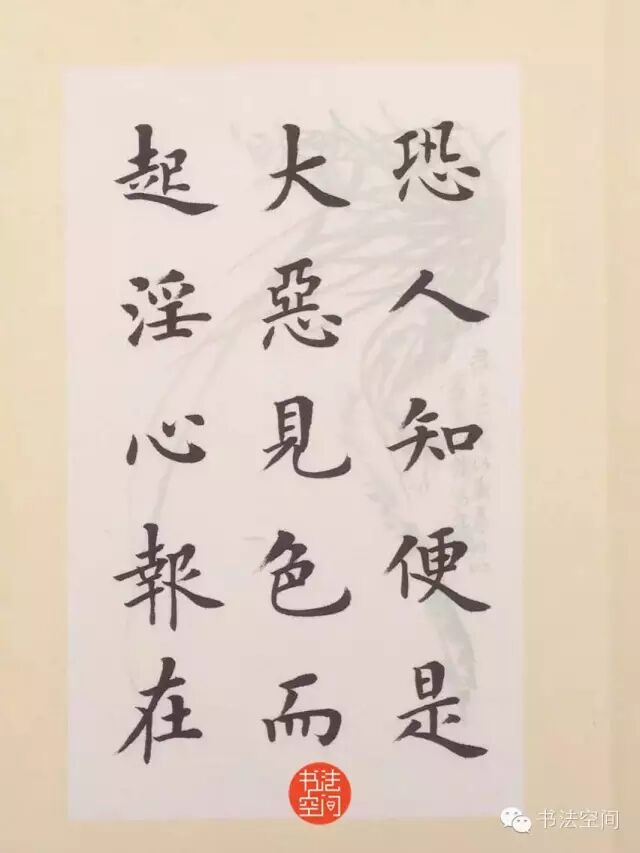 恐人知便是
大惡見色而
起淫心報在
书法空间
书法空间